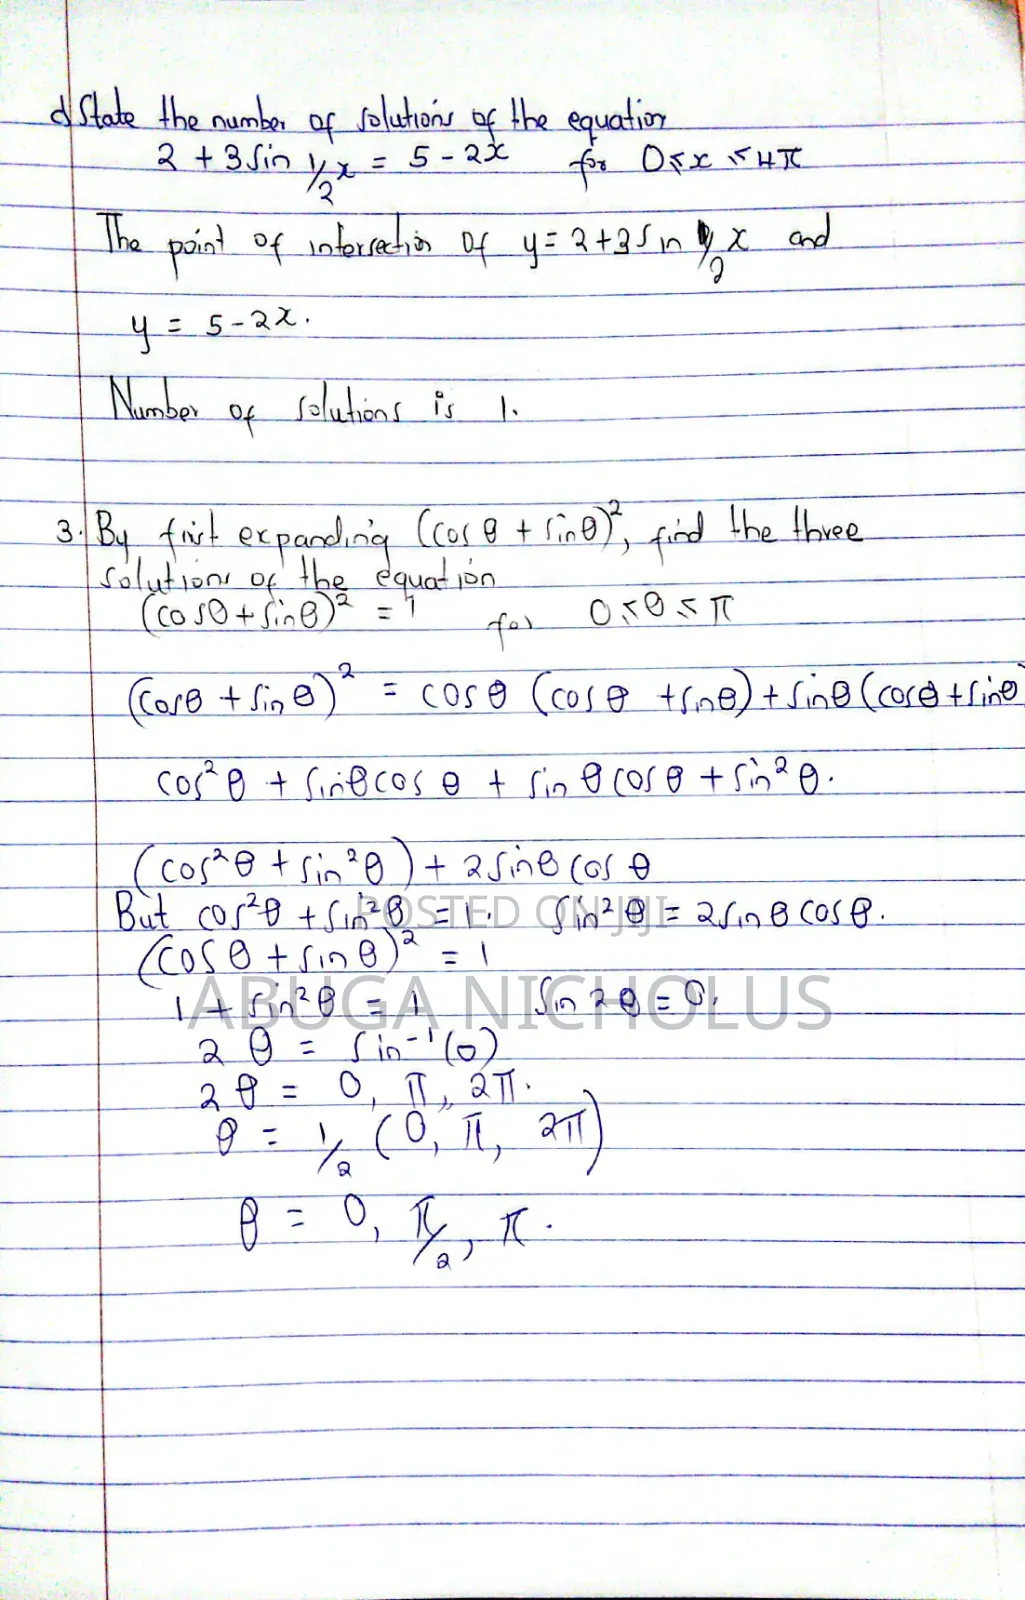 d) State the number of solutions of the equation
2 + 3 sin 1/2 x = 5 - 2x for 0 ≤ x ≤ 4π
The point of intersection of y = 2 + 3 sin 1/2 x and
y = 5 - 2x.
Number of solutions is 1.
3. By first expanding (cos θ + sin θ)², find the three
solutions of the equation
(cos θ + sin θ)² = 1 for 0 ≤ θ ≤ π
(cos θ + sin θ)² = cos θ (cos θ + sin θ) + sin θ (cos θ + sin θ
cos² θ + sin θ cos θ + sin θ cos θ + sin² θ.
(cos² θ + sin² θ) + 2 sin θ cos θ
But cos² θ + sin² θ = 1. sin² θ = 2 sin θ cos θ.
POSTED ON JIJI
(cos θ + sin θ)² = 1
1 + sin² θ = 1 sin 2 θ = 0.
ABUGA NICHOLUS
2 θ = sin⁻¹(0)
2 θ = 0, π, 2π.
θ = 1/2 (0, π, 2π)
θ = 0, π/2, π.